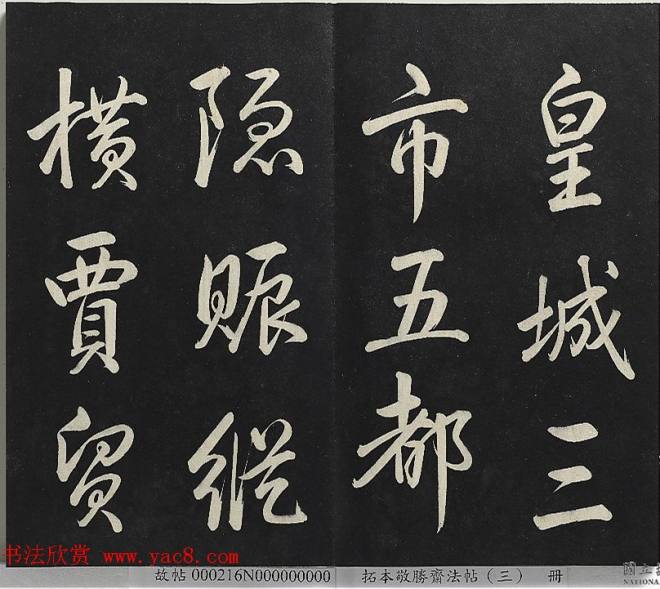 皇城三
市五都
隱賑縱
橫賈貿
书法欣赏 www.yac8.com
故帖 000216N000000000 拓本敬勝齋法帖（三） 冊
國立
NATIONA